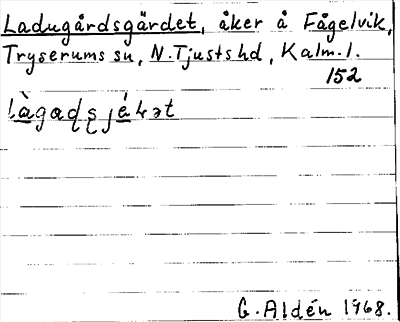 Ladugårdsgärdet, åker å Fågelvik,
Tryserums sn, N. Tjusts hd, Kalm. l.
152
G. Aldén 1968.